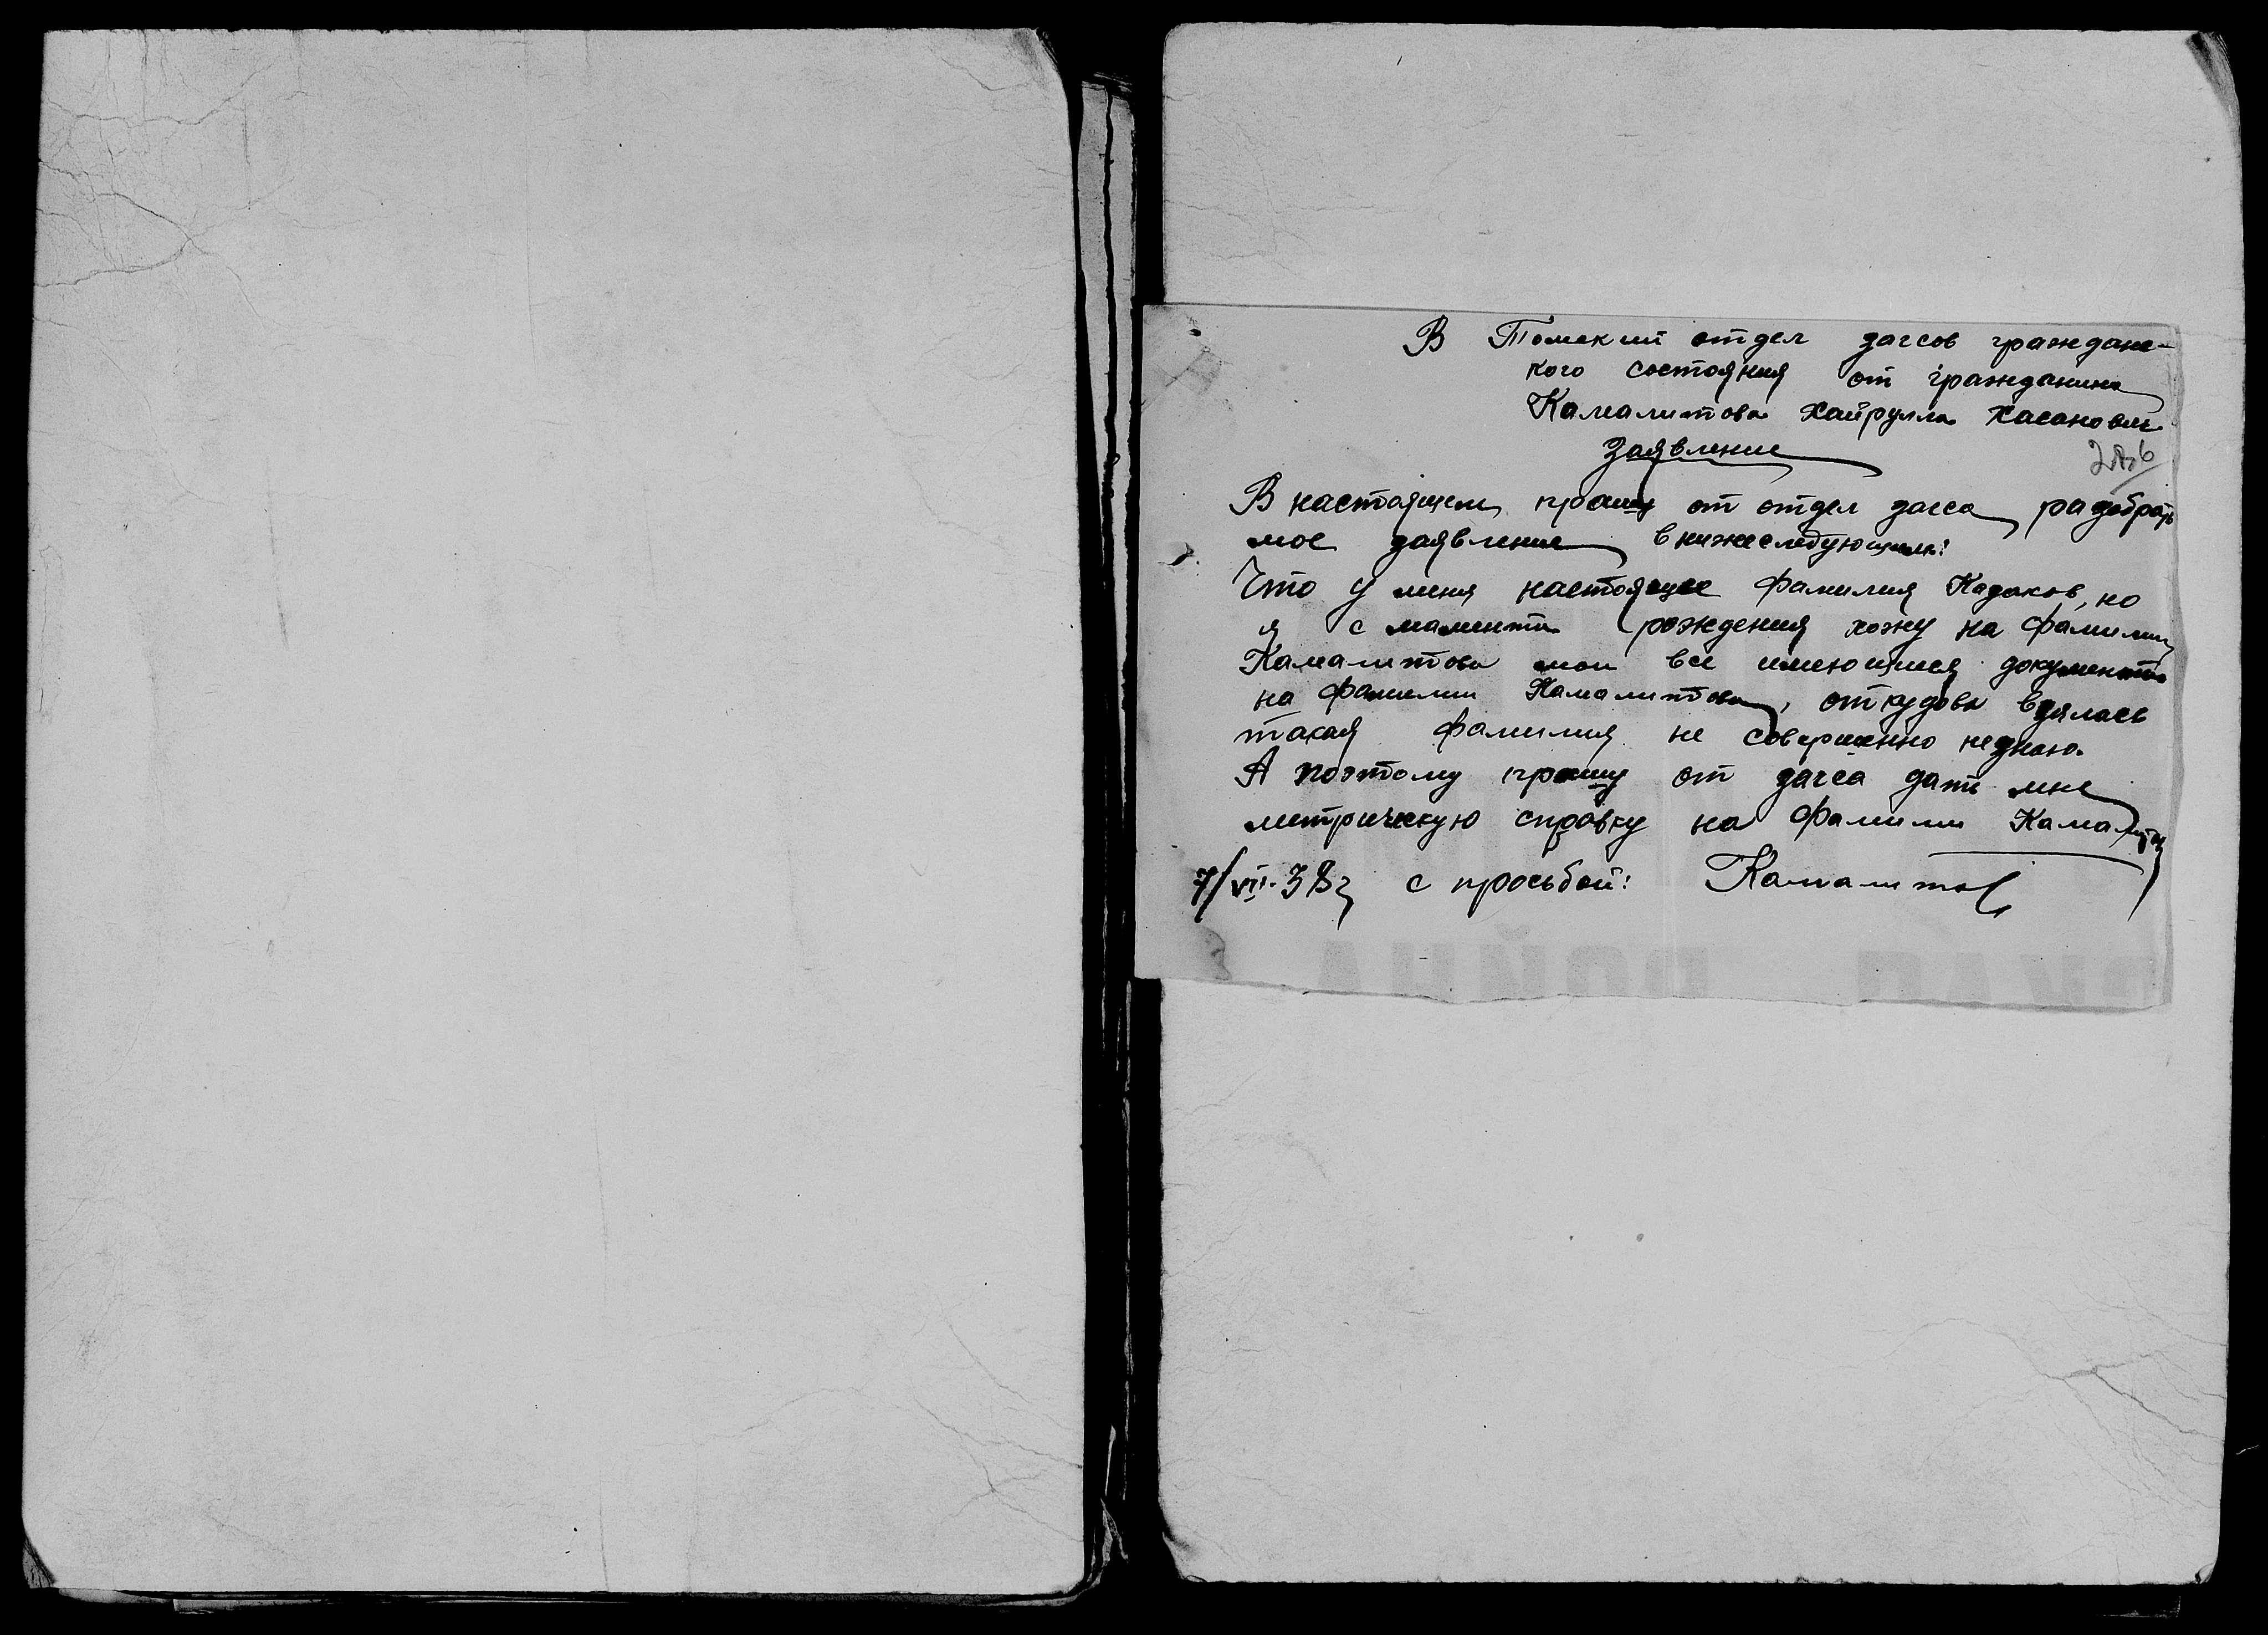 В Томский отдел загсов граждане-
кого состояния от гражданина
Камалитова Хайрулла Хасанович
Заявление
В настоящем прошу от отдел загса разобрать
мое заявление в нижеследующем:
Что у меня настоящее фамилия Казаков, но
я с мамента рождения хожу на фамилии
Камалитова мои все имеющиеся документы
на фамилии Камалитова, откудова взялась
такая фамилия не совершенно незнаю.
А поэтому прошу от загса дать мне
метрическую справку на фамили
7/VII-38г с просьбой: Камалитов